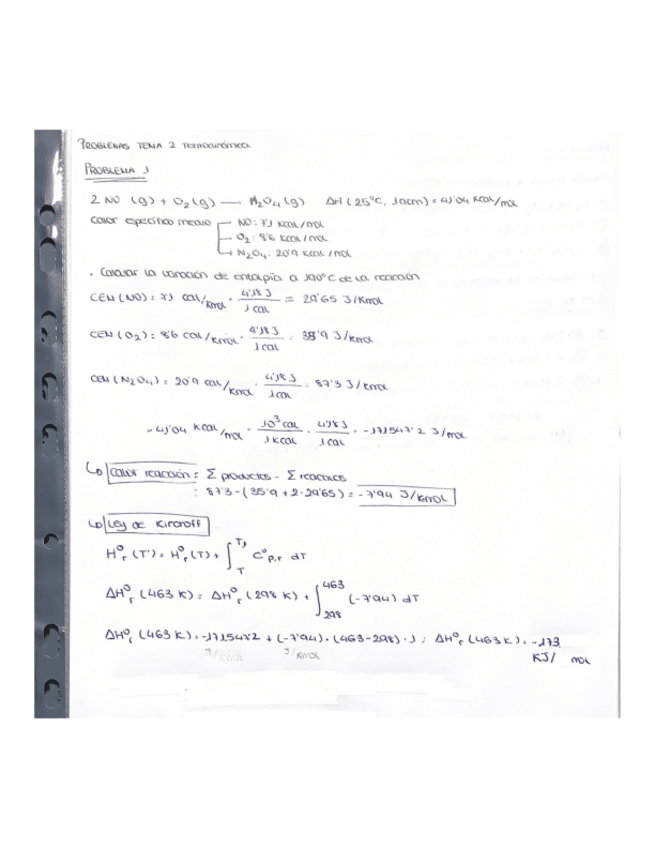 PROBLEMAS TEMA 2 Termodinámica
PROBLEMA 1
2 NO (g) + O₂(g) — N₂O₄(g) ΔH (25°C, 1atm) = 41'04 Kcal/mol
Calor específico medio NO: 7'1 Kcal/mol
O₂: 8'6 Kcal/mol
N₂O₄: 20'9 Kcal/mol
· Calcular la variación de entalpía a 190°C de la reacción
CEM (NO) = 7'1 cal/Kmol · 4'18 J / 1 cal = 29'65 J/Kmol
CEM (O₂) : 8'6 cal/Kmol · 4'18 J / 1 cal = 35'9 J/Kmol
CEM (N₂O₄) = 20'9 cal/Kmol · 4'18 J / 1 cal = 87'3 J/Kmol
- 41'04 Kcal/mol · 10³ cal / 1 Kcal · 4'18 J / 1 cal = -171547'2 J/mol
↳ Calor reacción = Σ productos - Σ reactivos
: 87'3 - (35'9 + 2·29'65) = -7'94 J/Kmol
↳ Ley de Kircroff
H°r (T') = H°r (T) + ∫ T T' C°p,r dT
ΔH°r (463 K) = ΔH°r (298 K) + ∫ 298 463 (-7'94) dT
ΔH°r (463 K) = -171547'2 + (-7'94) · (463-298) · 1 ; ΔH°r (463 K) = -173
J/Kmol J/Kmol KJ/ mol